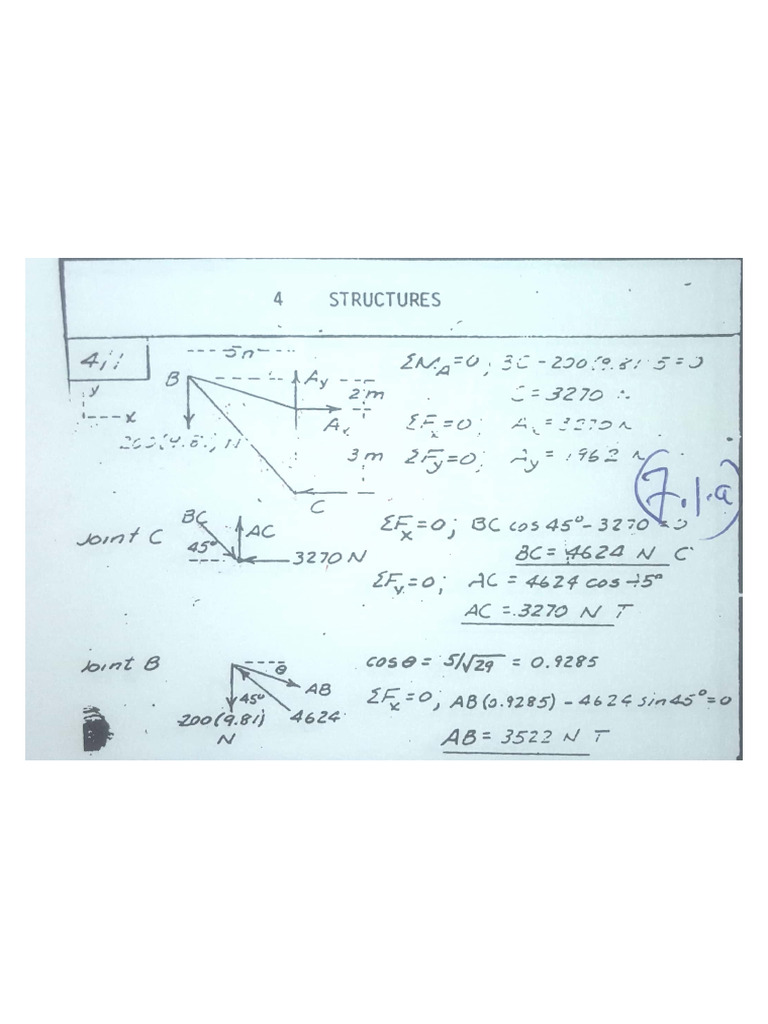 4 STRUCTURES
4/1
y
x
5m
B
Ay
2 m
Ax
200(9.81) N
3 m
C
ΣM_A=0; 3C - 200(9.81)5=0
C = 3270 N
ΣFx=0; Ax = 3270 N
ΣFy=0; Ay = 1962 N
7.1.a
Joint C
BC
AC
45°
3270 N
ΣFx=0; BC cos 45° - 3270 = 0
BC = 4624 N C
ΣFy=0; AC = 4624 cos 45°
AC = 3270 N T
Joint B
θ
AB
45°
200(9.81) N
4624
cos θ = 5/√29 = 0.9285
ΣFx=0; AB(0.9285) - 4624 sin 45° = 0
AB = 3522 N T